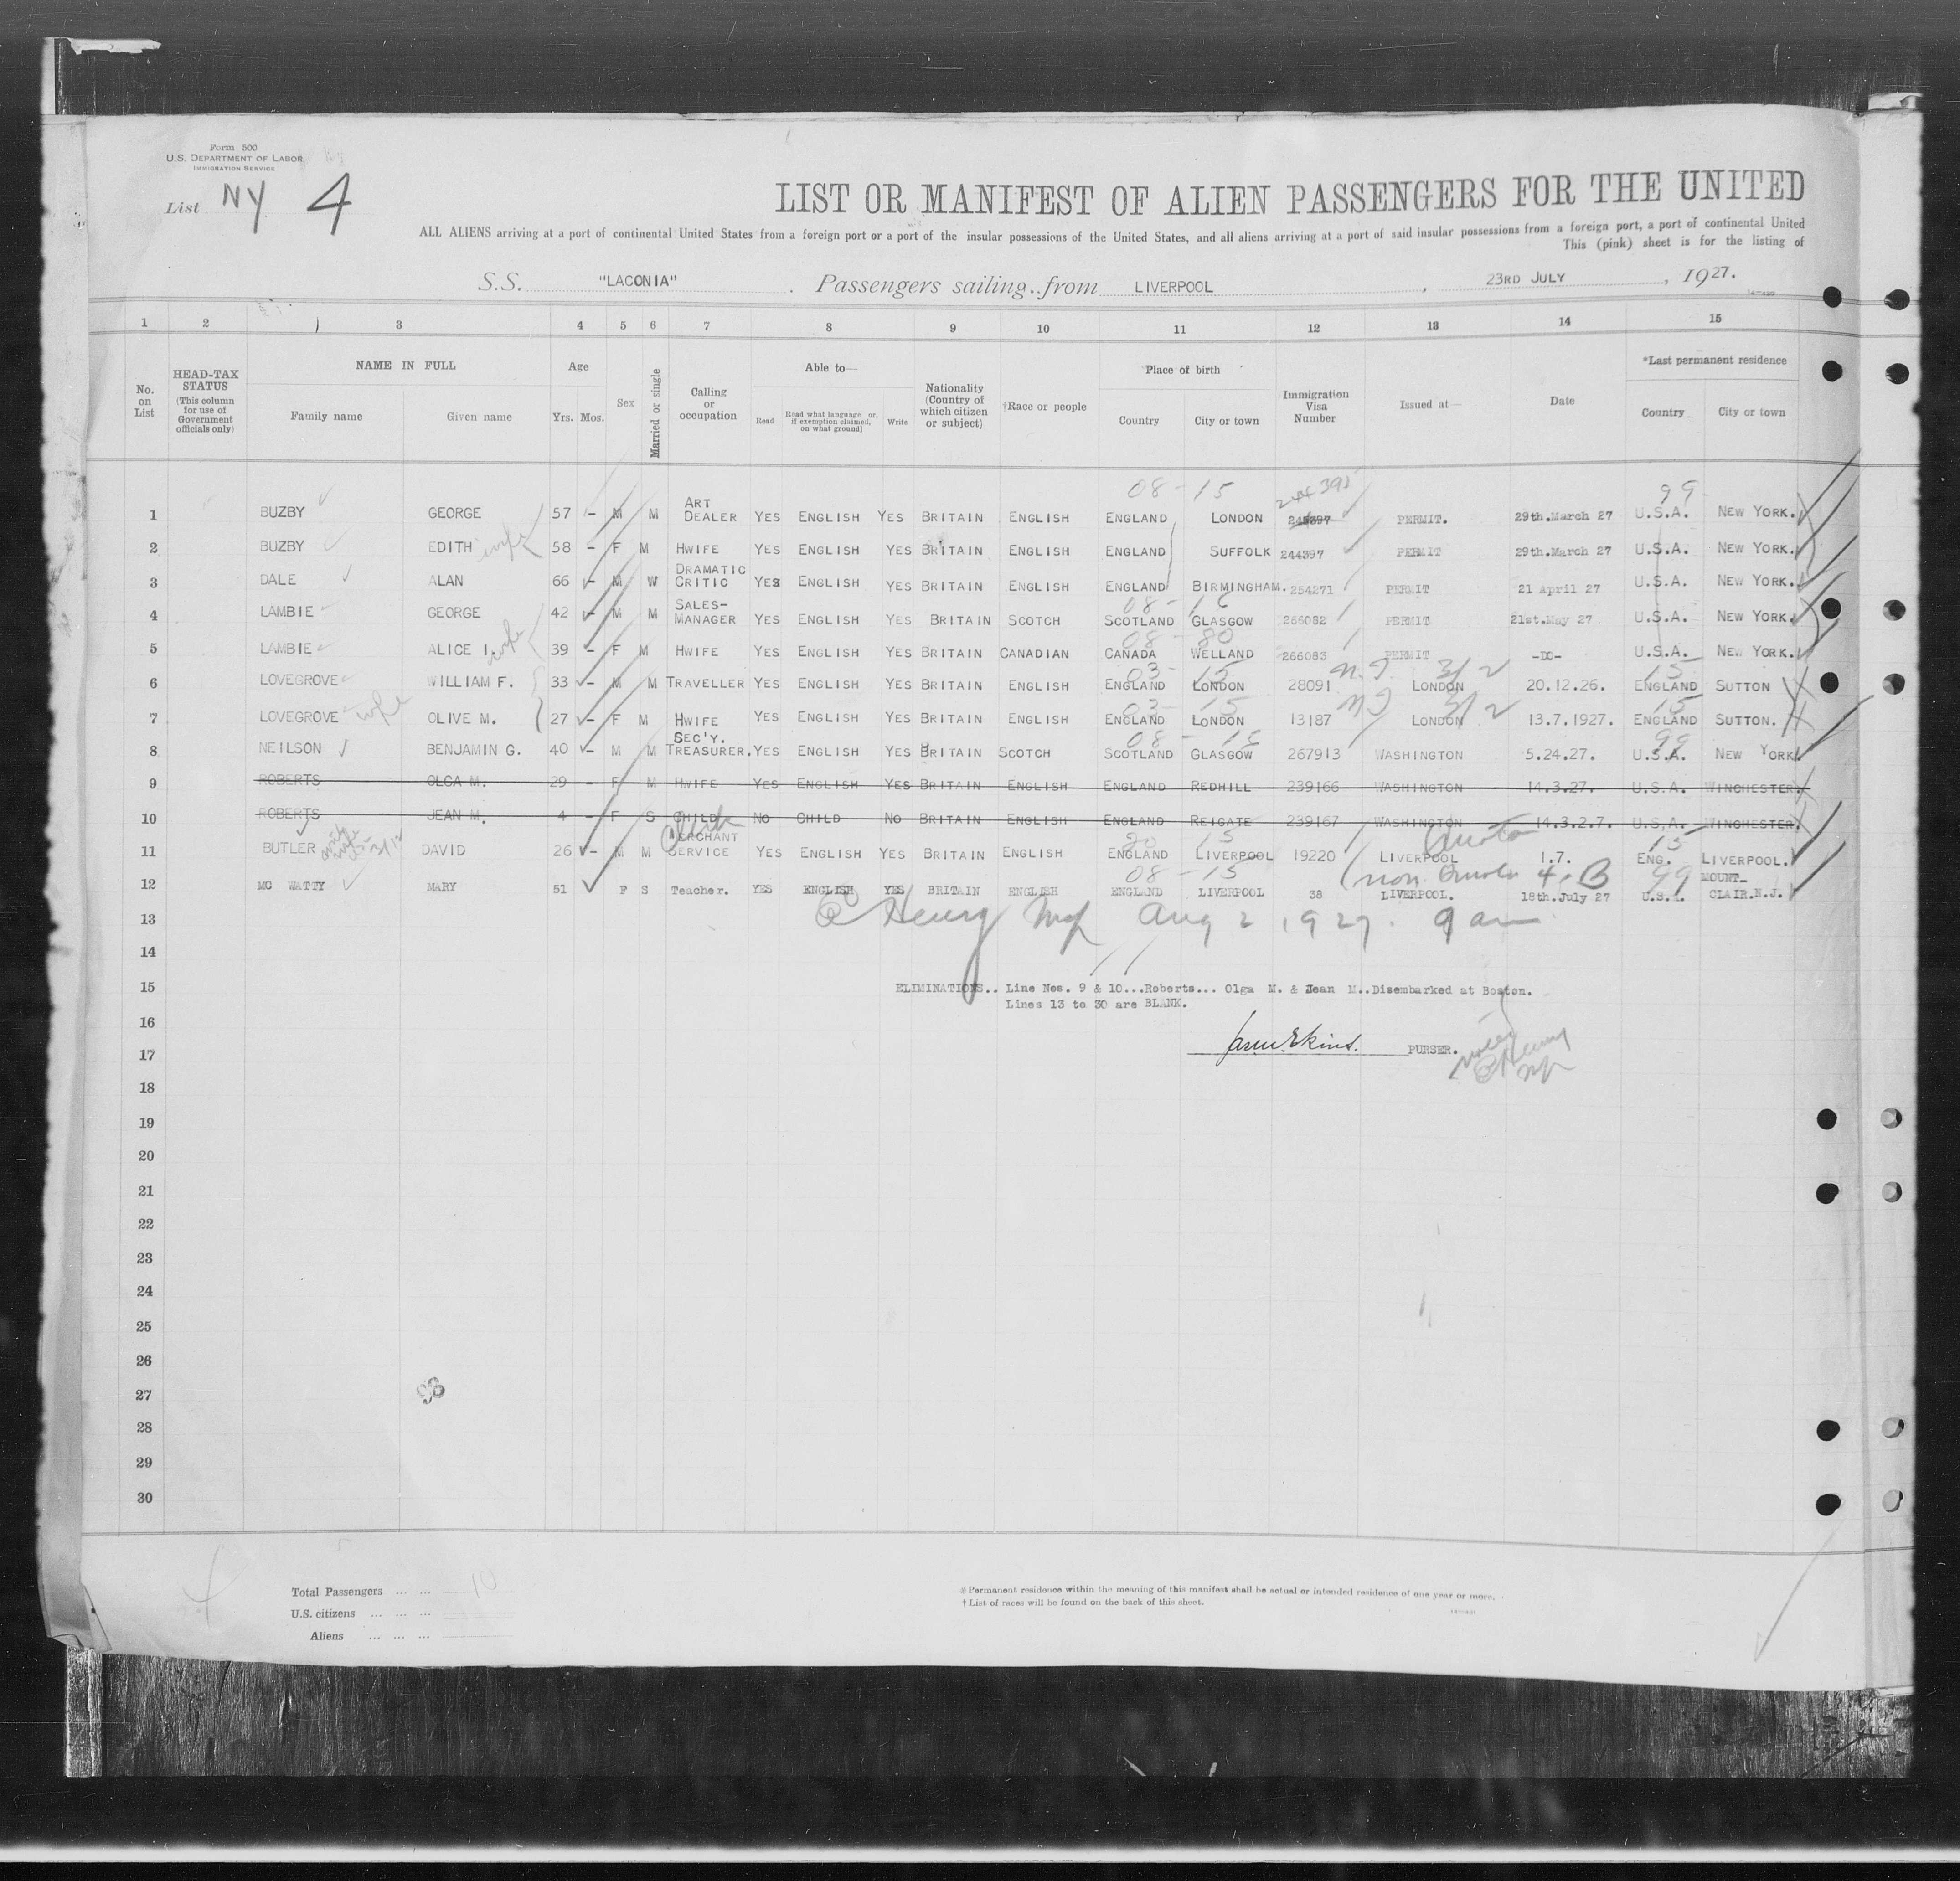 Form 500
U.S. DEPARTMENT OF LABOR
IMMIGRATION SERVICE
List NY 4
LIST OR MANIFEST OF ALIEN PASSENGERS FOR THE UNITED
ALL ALIENS arriving at a port of continental United States from a foreign port or a port of the insular possessions of the United States, and all aliens arriving at a port of said insular possessions from a foreign port, a port of continental United
This (pink) sheet is for the listing of
S.S. "LACONIA" . Passengers sailing from LIVERPOOL , 23RD JULY , 1927.
1 2 3 4 5 6 7 8 9 10 11 12 13 14 15
No. on List
HEAD-TAX STATUS (This column for use of Government officials only)
NAME IN FULL
Family name Given name
Age
Yrs. Mos.
Sex
Married or single
Calling or occupation
Able to—
Read Read what language or, if exemption claimed, on what ground) Write
Nationality (Country of which citizen or subject)
†Race or people
Place of birth
Country City or town
Immigration Visa Number
Issued at—
Date
*Last permanent residence
Country City or town
08-15 244398 99
1 BUZBY GEORGE 57 - M M ART DEALER YES ENGLISH YES BRITAIN ENGLISH ENGLAND LONDON 244397 PERMIT. 29th.March 27 U.S.A. NEW YORK.
2 BUZBY EDITH wife 58 - F M HWIFE YES ENGLISH YES BRITAIN ENGLISH ENGLAND SUFFOLK 244397 PERMIT 29th.March 27 U.S.A. NEW YORK.
3 DALE ALAN 66 - M W DRAMATIC CRITIC YES ENGLISH YES BRITAIN ENGLISH ENGLAND BIRMINGHAM. 254271 PERMIT 21 April 27 U.S.A. NEW YORK.
08-16
4 LAMBIE GEORGE 42 - M M SALES-MANAGER YES ENGLISH YES BRITAIN SCOTCH SCOTLAND GLASGOW 266082 PERMIT 21st.May 27 U.S.A. NEW YORK.
08-80
5 LAMBIE ALICE I. wife 39 - F M HWIFE YES ENGLISH YES BRITAIN CANADIAN CANADA WELLAND 266083 PERMIT -DO- U.S.A. NEW YORK.
03 15 3/2 15
6 LOVEGROVE WILLIAM F. 33 - M M TRAVELLER YES ENGLISH YES BRITAIN ENGLISH ENGLAND LONDON 28091 LONDON 20.12.26. ENGLAND SUTTON
03 15 3/2 15
7 LOVEGROVE wife OLIVE M. 27 - F M HWIFE YES ENGLISH YES BRITAIN ENGLISH ENGLAND LONDON 13187 LONDON 13.7.1927. ENGLAND SUTTON.
08-16 99
8 NEILSON BENJAMIN G. 40 - M M SEC'Y. TREASURER. YES ENGLISH YES BRITAIN SCOTCH SCOTLAND GLASGOW 267913 WASHINGTON 5.24.27. U.S.A. NEW YORK
9 ROBERTS OLGA M. 29 - F M HWIFE YES ENGLISH YES BRITAIN ENGLISH ENGLAND REDHILL 239166 WASHINGTON 14.3.27. U.S.A. WINCHESTER.
10 ROBERTS JEAN M. 4 - F S CHILD NO CHILD NO BRITAIN ENGLISH ENGLAND REIGATE 239167 WASHINGTON 14.3.2.7. U.S.A. WINCHESTER.
Clerk 20 15 Quota 15
11 BUTLER DAVID 26 - M M MERCHANT SERVICE YES ENGLISH YES BRITAIN ENGLISH ENGLAND LIVERPOOL 19220 LIVERPOOL 1.7. ENG. LIVERPOOL.
08-15 non Quota 4-B 99
12 MC WATTY MARY 51 F S Teacher. YES ENGLISH YES BRITAIN ENGLISH ENGLAND LIVERPOOL 38 LIVERPOOL. 18th.July 27 U.S.A. MOUNT-CLAIR.N.J.
13 Henry Aug 2 1927. 9 am
14
15 ELIMINATIONS.. Line Nos. 9 & 10...Roberts... Olga M. & Jean M..Disembarked at Boston.
Lines 13 to 30 are BLANK.
16
17 PURSER.
18
19
20
21
22
23
24
25
26
27
28
29
30
Total Passengers ... ... 10
U.S. citizens ... ... ...
Aliens ... ... ...
* Permanent residence within the meaning of this manifest shall be actual or intended residence of one year or more.
† List of races will be found on the back of this sheet.